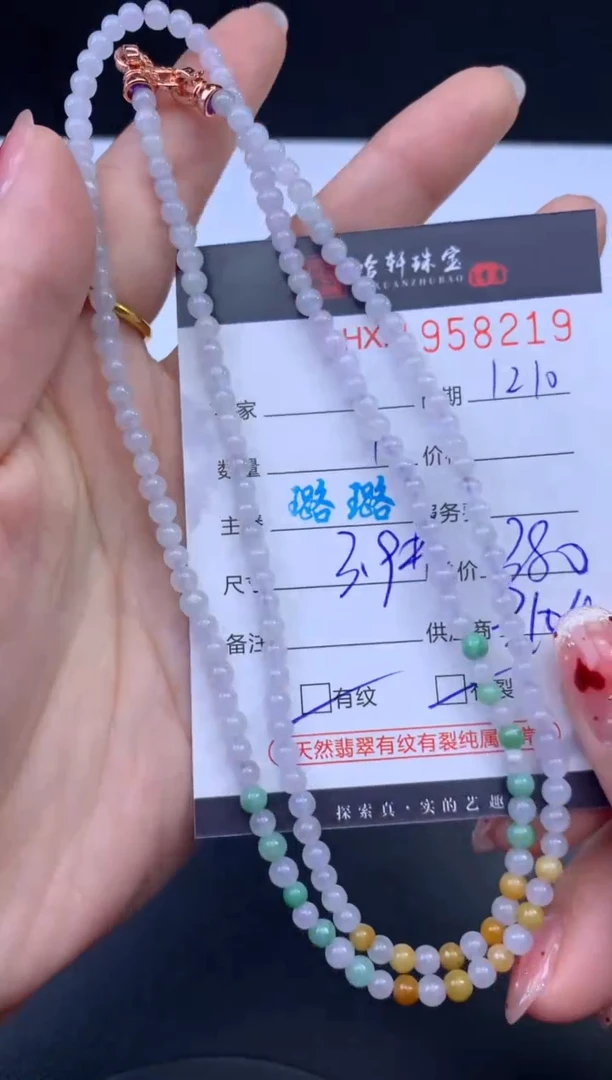 轩珠宝
XUANZHUBAO
HX. 958219
家 期 1210
数量 1 价
主 璐璐 服务
尺 3.9# 价 380
备注 供 商
有纹 裂
天然翡翠有纹有裂纯属
探索真·实的艺趣